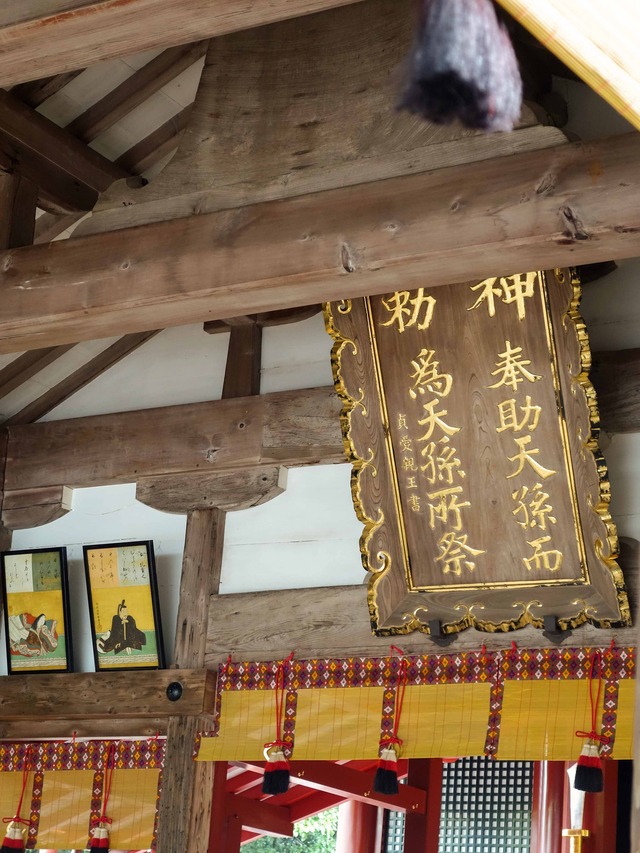 神奉助天孫而
勅為天孫所祭
貞愛親王書